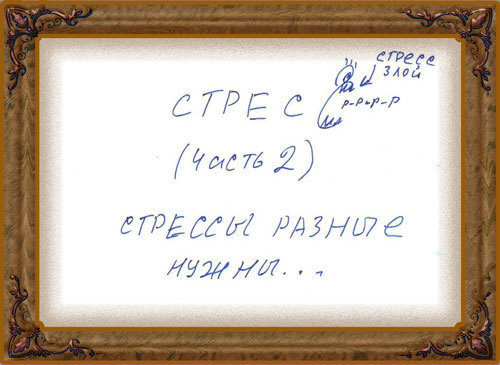 стресс
злой
р-р-р-р
СТРЕС
(часть 2)
СТРЕССЫ РАЗНЫЕ
НУЖНЫ...